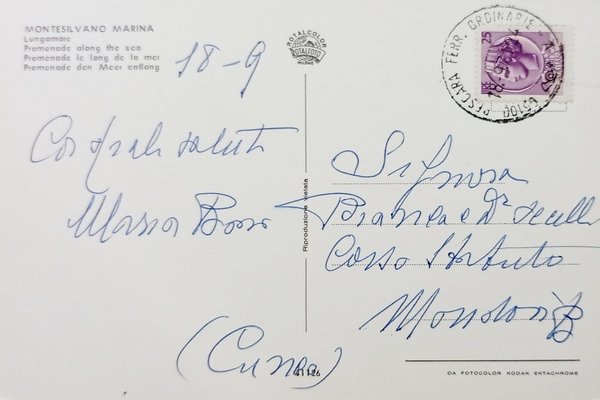 MONTESILVANO MARINA
Lungomare
Promenade along the sea
Promenade le long de la mer
Promenade den Meer entlang
18-9
Cordiali saluti
ROTALCOLOR
ROTALFOTO
MILANO
Riproduzione vietata
PESCARA FERR. ORDINARIE
65100
25
Signora
Bianca
Corso Statuto
Mondovì B
(Cuneo)
41126
DA FOTOCOLOR KODAK EKTACHROME